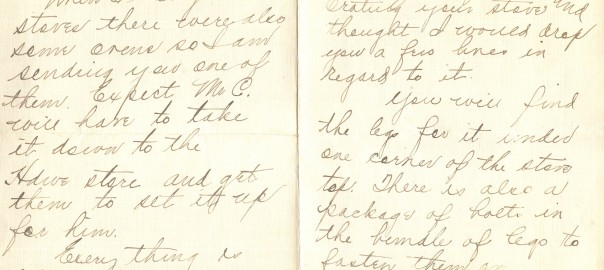 stoves there were also
some ovens so I am
sending you one of
them. Expect Mr C.
will have to take
it down to the
Hdwe store and get
them to set it up
for him.
Everything is
crating your stove and
thought I would drop
you a few lines in
regard to it.
You will find
the legs for it under
one corner of the stove
top. There is also a
package of bolts in
the bundle of legs to
fasten them on